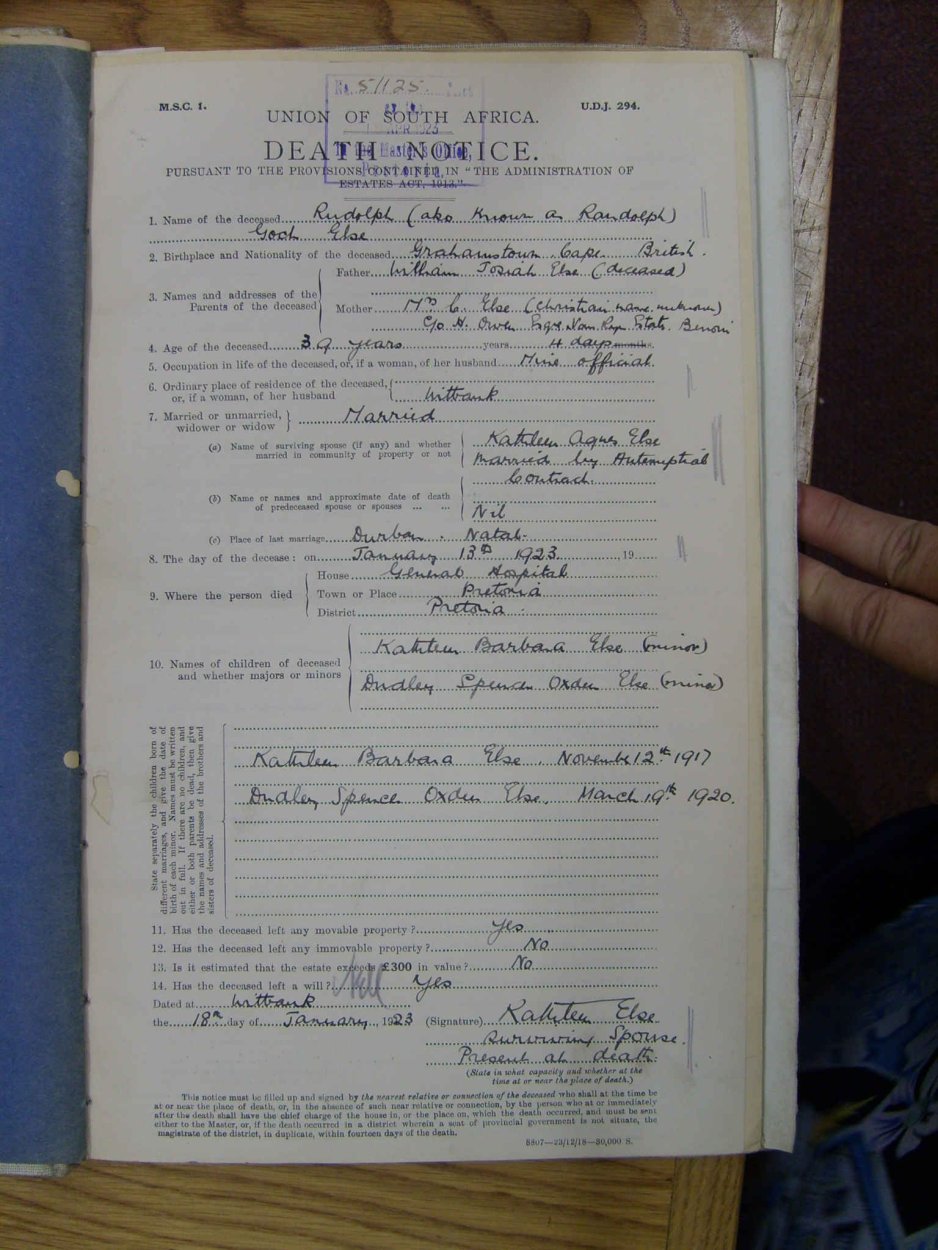 No. 51125
M.S.C. 1.
U.D.J. 294.
UNION OF SOUTH AFRICA.
APR 1923
DEATH NOTICE.
Master's Office,
Pretoria.
PURSUANT TO THE PROVISIONS CONTAINED IN "THE ADMINISTRATION OF
ESTATES ACT, 1913."
1. Name of the deceased Rudolph (also known as Randolph)
Goch Else
2. Birthplace and Nationality of the deceased Grahamstown Cape British.
3. Names and addresses of the Parents of the deceased
Father William Josiah Else (deceased)
Mother Mrs C. Else (Christian name unknown)
C/o H. Owen Esqre Benoni
4. Age of the deceased 39 years years 4 days months.
5. Occupation in life of the deceased, or, if a woman, of her husband Mine official
6. Ordinary place of residence of the deceased, or, if a woman, of her husband
Witbank
7. Married or unmarried, widower or widow Married
(a) Name of surviving spouse (if any) and whether married in community of property or not
Kathleen Agnes Else
Married by Antenuptial
Contract.
(b) Name or names and approximate date of death of predeceased spouse or spouses ... ...
Nil
(c) Place of last marriage Durban. Natal.
8. The day of the decease: on January 13th 1923 , 19
9. Where the person died
House General Hospital
Town or Place Pretoria
District Pretoria.
10. Names of children of deceased and whether majors or minors
Kathleen Barbara Else (minor)
Dudley Spence Oxden Else (minor)
State separately the children born of
different marriages, and give the date of
birth of each minor. Names must be written
out in full. If there are no children, and
either or both parents be dead, then give
the names and addresses of the brothers and
sisters of deceased.
Kathleen Barbara Else. November 12th 1917
Dudley Spence Oxden Else. March 19th 1920.
11. Has the deceased left any movable property? Yes
12. Has the deceased left any immovable property? No
13. Is it estimated that the estate exceeds £300 in value? No
14. Has the deceased left a will? Yes
Dated at Witbank
the 18th day of January, 1923
(Signature) Kathleen Else
Surviving Spouse.
Present at death.
(State in what capacity and whether at the
time at or near the place of death.)
This notice must be filled up and signed by the nearest relative or connection of the deceased who shall at the time be
at or near the place of death, or, in the absence of such near relative or connection, by the person who at or immediately
after the death shall have the chief charge of the house in, or the place on, which the death occurred, and must be sent
either to the Master, or, if the death occurred in a district wherein a seat of provincial government is not situate, the
magistrate of the district, in duplicate, within fourteen days of the death.
8807—23/12/18—30,000 S.